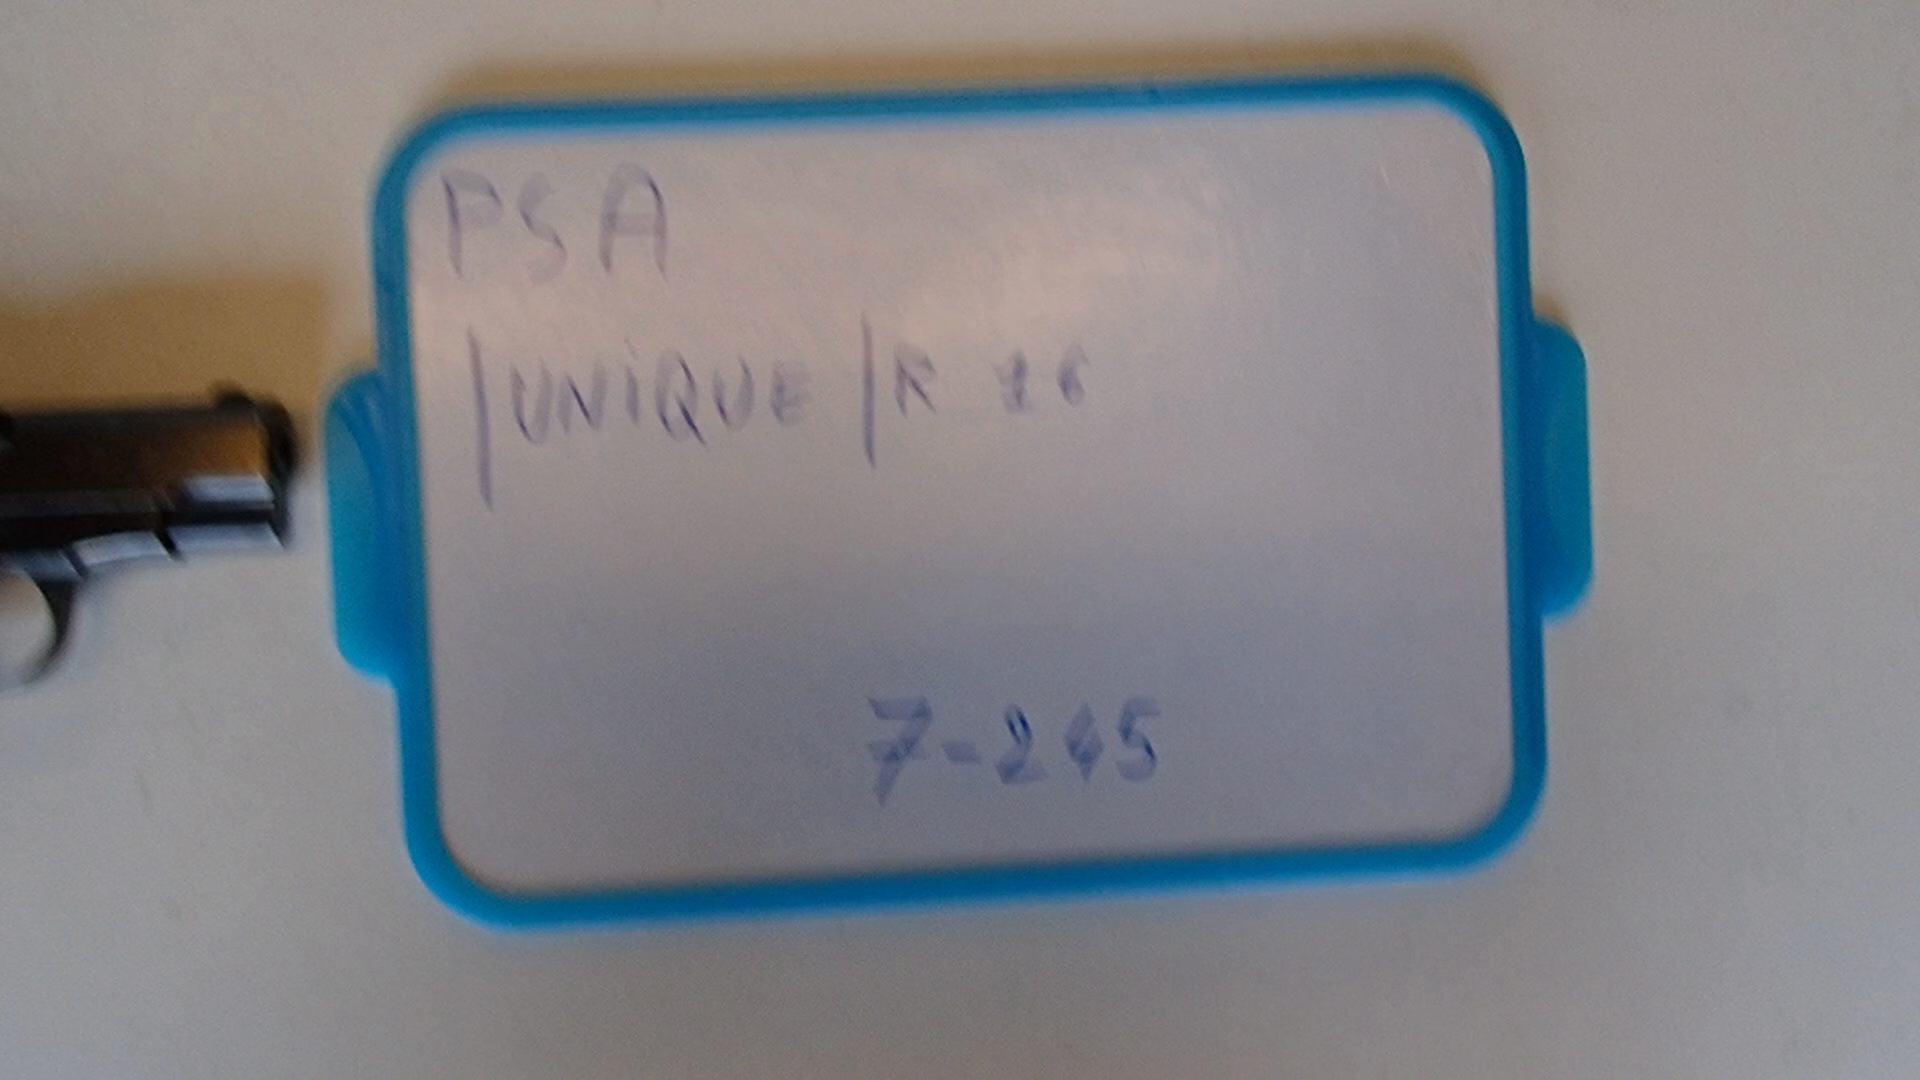 PSA
/UNiQUE/R 16
7-245